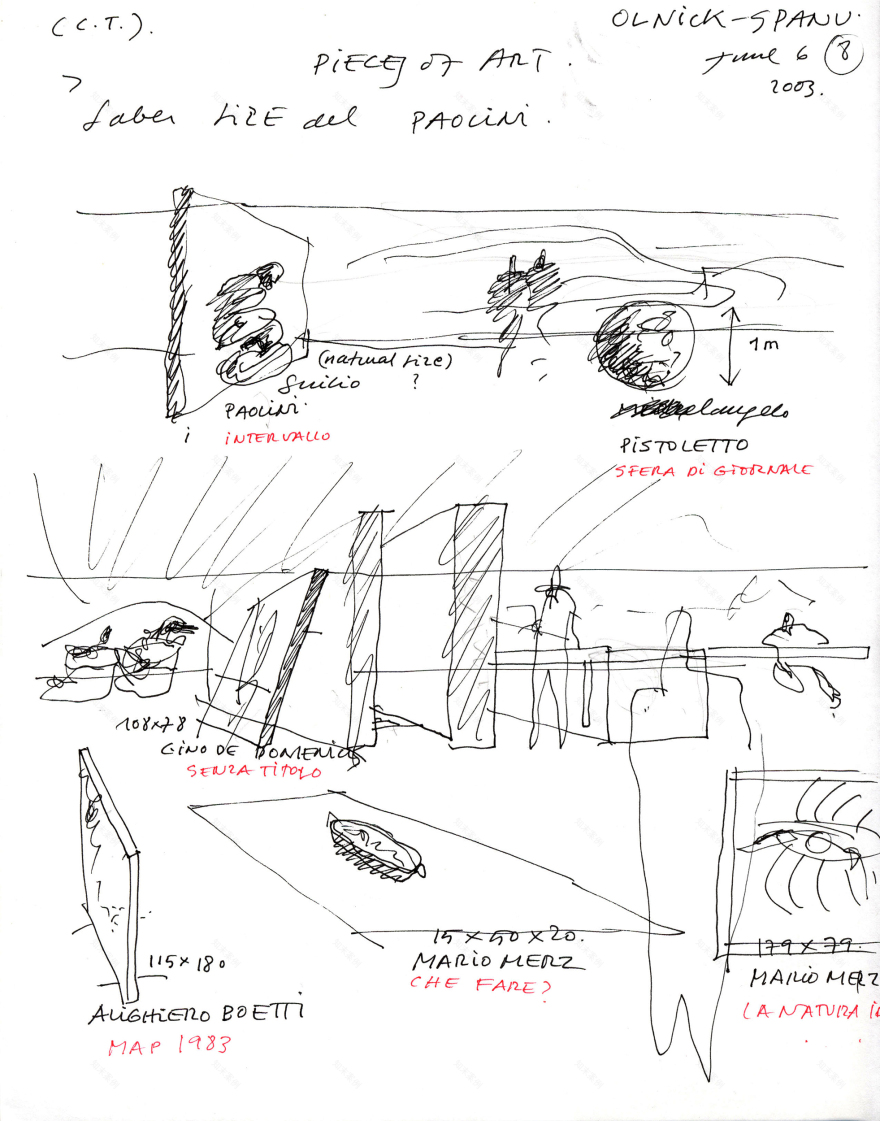 (C.T.).
OLNICK-SPANU.
June 6 8
2003.
PIECES OF ART.
> Saber SIZE del PAOLINI.
1m
(natural size)
?
Guilio
PAOLINI.
i INTERVALLO
elangelo
PISTOLETTO
SFERA Di GIORNALE
108x78
GINO DE DOMENICIS
SENZA TITOLO
115x180
ALIGHIERO BOETTI
MAP 1983
15 x 50 x 20.
MARIO MERZ
CHE FARE?
179 x 79.
MARIO MERZ
LA NATURA